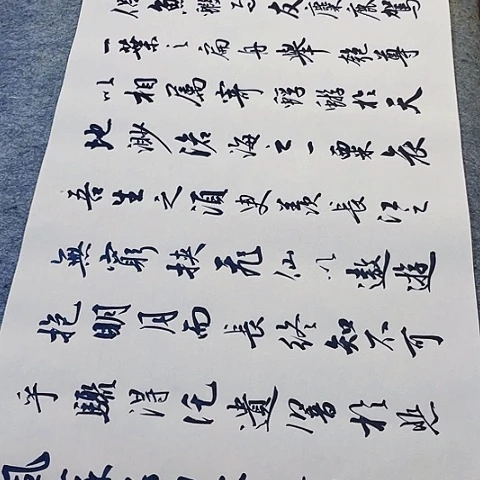 侶魚蝦而友麋鹿駕
一葉之扁舟舉匏尊
以相属寄蜉蝣於天
地渺滄海之一粟哀
吾生之須臾羨長江之
無窮挾飛仙以遨遊
抱明月而長終知不可
乎驟得托遺響於悲
風